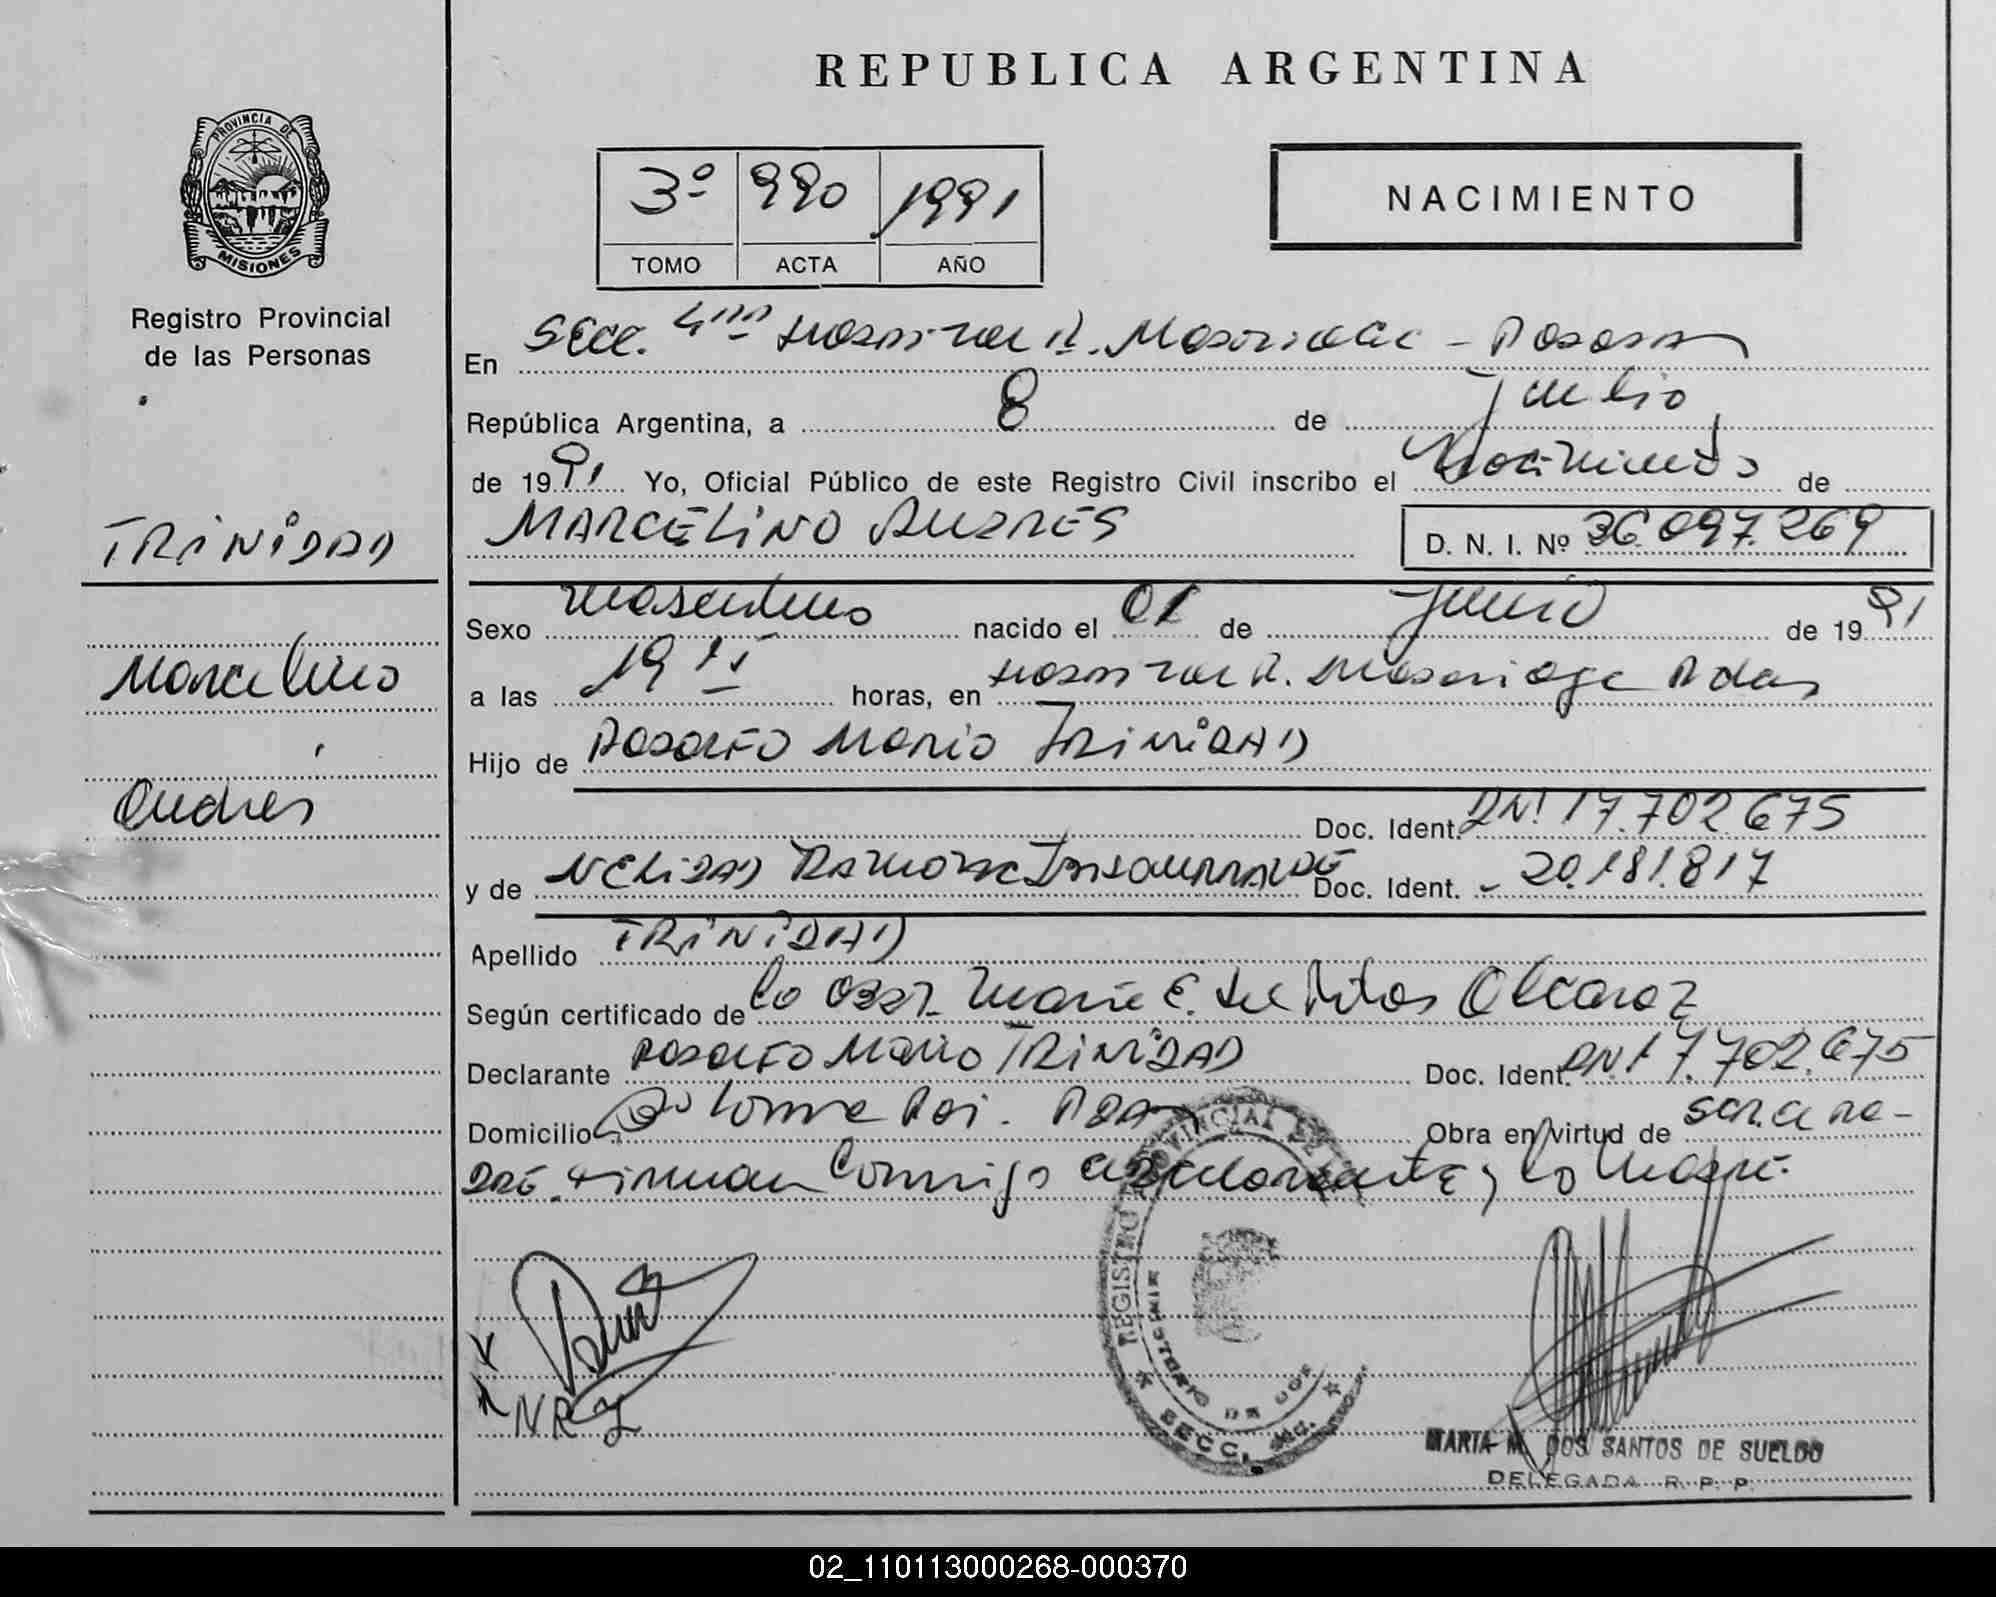 REPUBLICA ARGENTINA
PROVINCIA DE
MISIONES
Registro Provincial
de las Personas
3º 990 1991
TOMO ACTA AÑO
NACIMIENTO
En Secc. 4ta Hospital R. Madariaga - Posadas
República Argentina, a 8 de Julio
de 1991 Yo, Oficial Público de este Registro Civil inscribo el Nacimiento de
MARCELINO ANDRES D. N. I. Nº 36.097.269
TRINIDAD
Marcelino
Andres
Sexo masculino nacido el 01 de Junio de 1991
a las 19 15 horas, en Hospital R. Madariaga Pdas
Hijo de RODOLFO Mario TRINIDAD
Doc. Ident. DNI 17.702.675
y de NELIDAD RAMONA Doc. Ident. - 20.181.817
Apellido TRINIDAD
Según certificado de la Obst. Maria E. del Alcaraz
Declarante RODOLFO Mario TRINIDAD Doc. Ident. DNI 17.702.675
Domicilio Obra en virtud de ser el pa-
dre. Firman Conmigo el declarante y la Madre.
REGISTRO PROVINCIAL DE
MINISTERIO DE GOB
SECC. 4ta.
NRI
MARTA M. DOS SANTOS DE SUELDO
DELEGADA R. P. P.
02_110113000268-000370